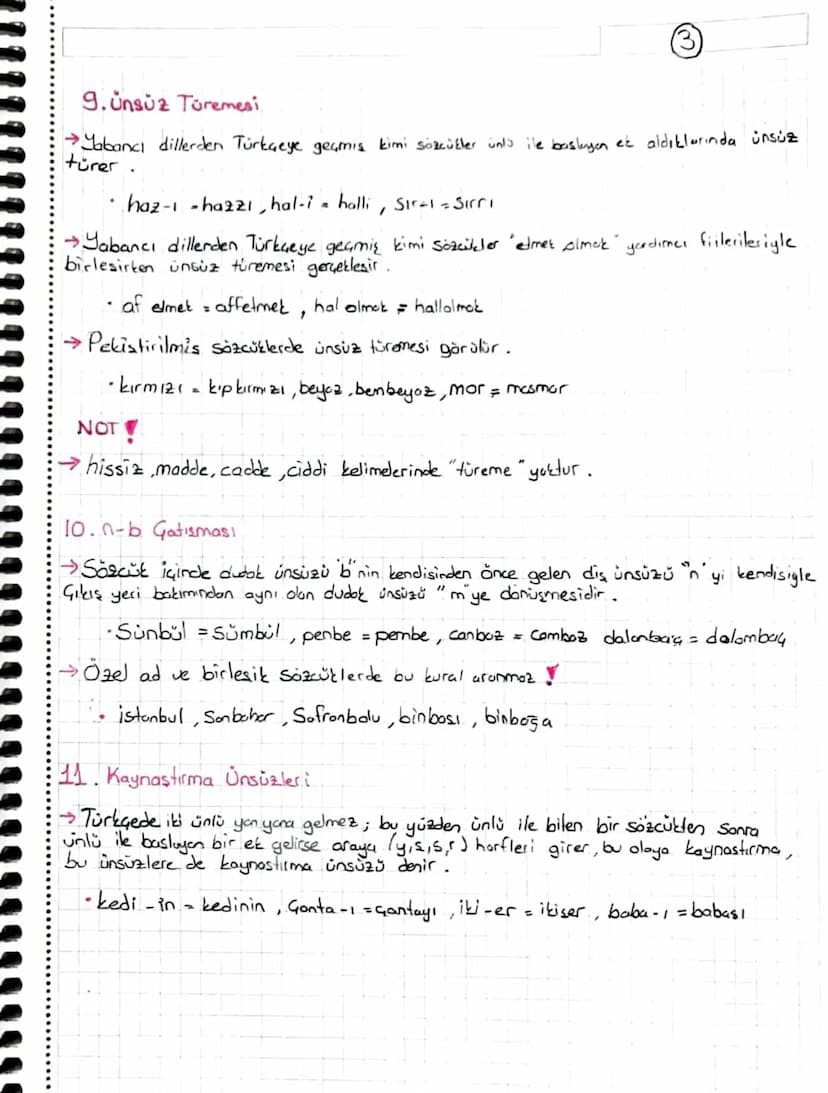 3
9. Ünsüz Türemesi
→ Yabancı dillerden Türkçeye geçmiş kimi sözcükler ünlü ile başlayan ek aldıklarında ünsüz
türer.
• haz-ı = hazzı, hal-i = halli, sır-ı = sırrı
→ Yabancı dillerden Türkçeye geçmiş kimi sözcükler "etmek olmak" yardımcı fiilerilesiyle
birleşirken ünsüz türemesi gerçekleşir.
• af etmek = affetmek, hal olmak = hallolmak
→ Pekiştirilmiş sözcüklerde ünsüz türemesi görülür.
• kırmızı = kıpkırmızı, beyaz, bembeyaz, mor = mosmor
NOT !
→ hissiz, madde, cadde, ciddi kelimelerinde "türeme" yoktur.
10. n-b Çatışması
→ Sözcük içinde dudak ünsüzü "b"nin kendisinden önce gelen diş ünsüzü "n"yi kendisiyle
çıkış yeri bakımından aynı olan dudak ünsüzü "m"ye dönüşmesidir.
• Sünbül = Sümbül, penbe = pembe, canbaz = cambaz dalanbaç = dalambaç
→ Özel ad ve birleşik sözcüklerde bu kural aranmaz !
• istanbul, Sonbahar, Safranbolu, binbaşı, binboğa
11. Kaynaştırma Ünsüzleri
→ Türkçede iki ünlü yan yana gelmez; bu yüzden ünlü ile biten bir sözcükten sonra
ünlü ile başlayan bir ek gelirse araya (y,ş,s,n) harfleri girer, bu olaya kaynaştırma,
bu ünsüzlere de kaynaştırma ünsüzü denir.
• kedi -in = kedinin, Çanta-ı = çantayı, iki-er = ikişer, baba-ı = babası